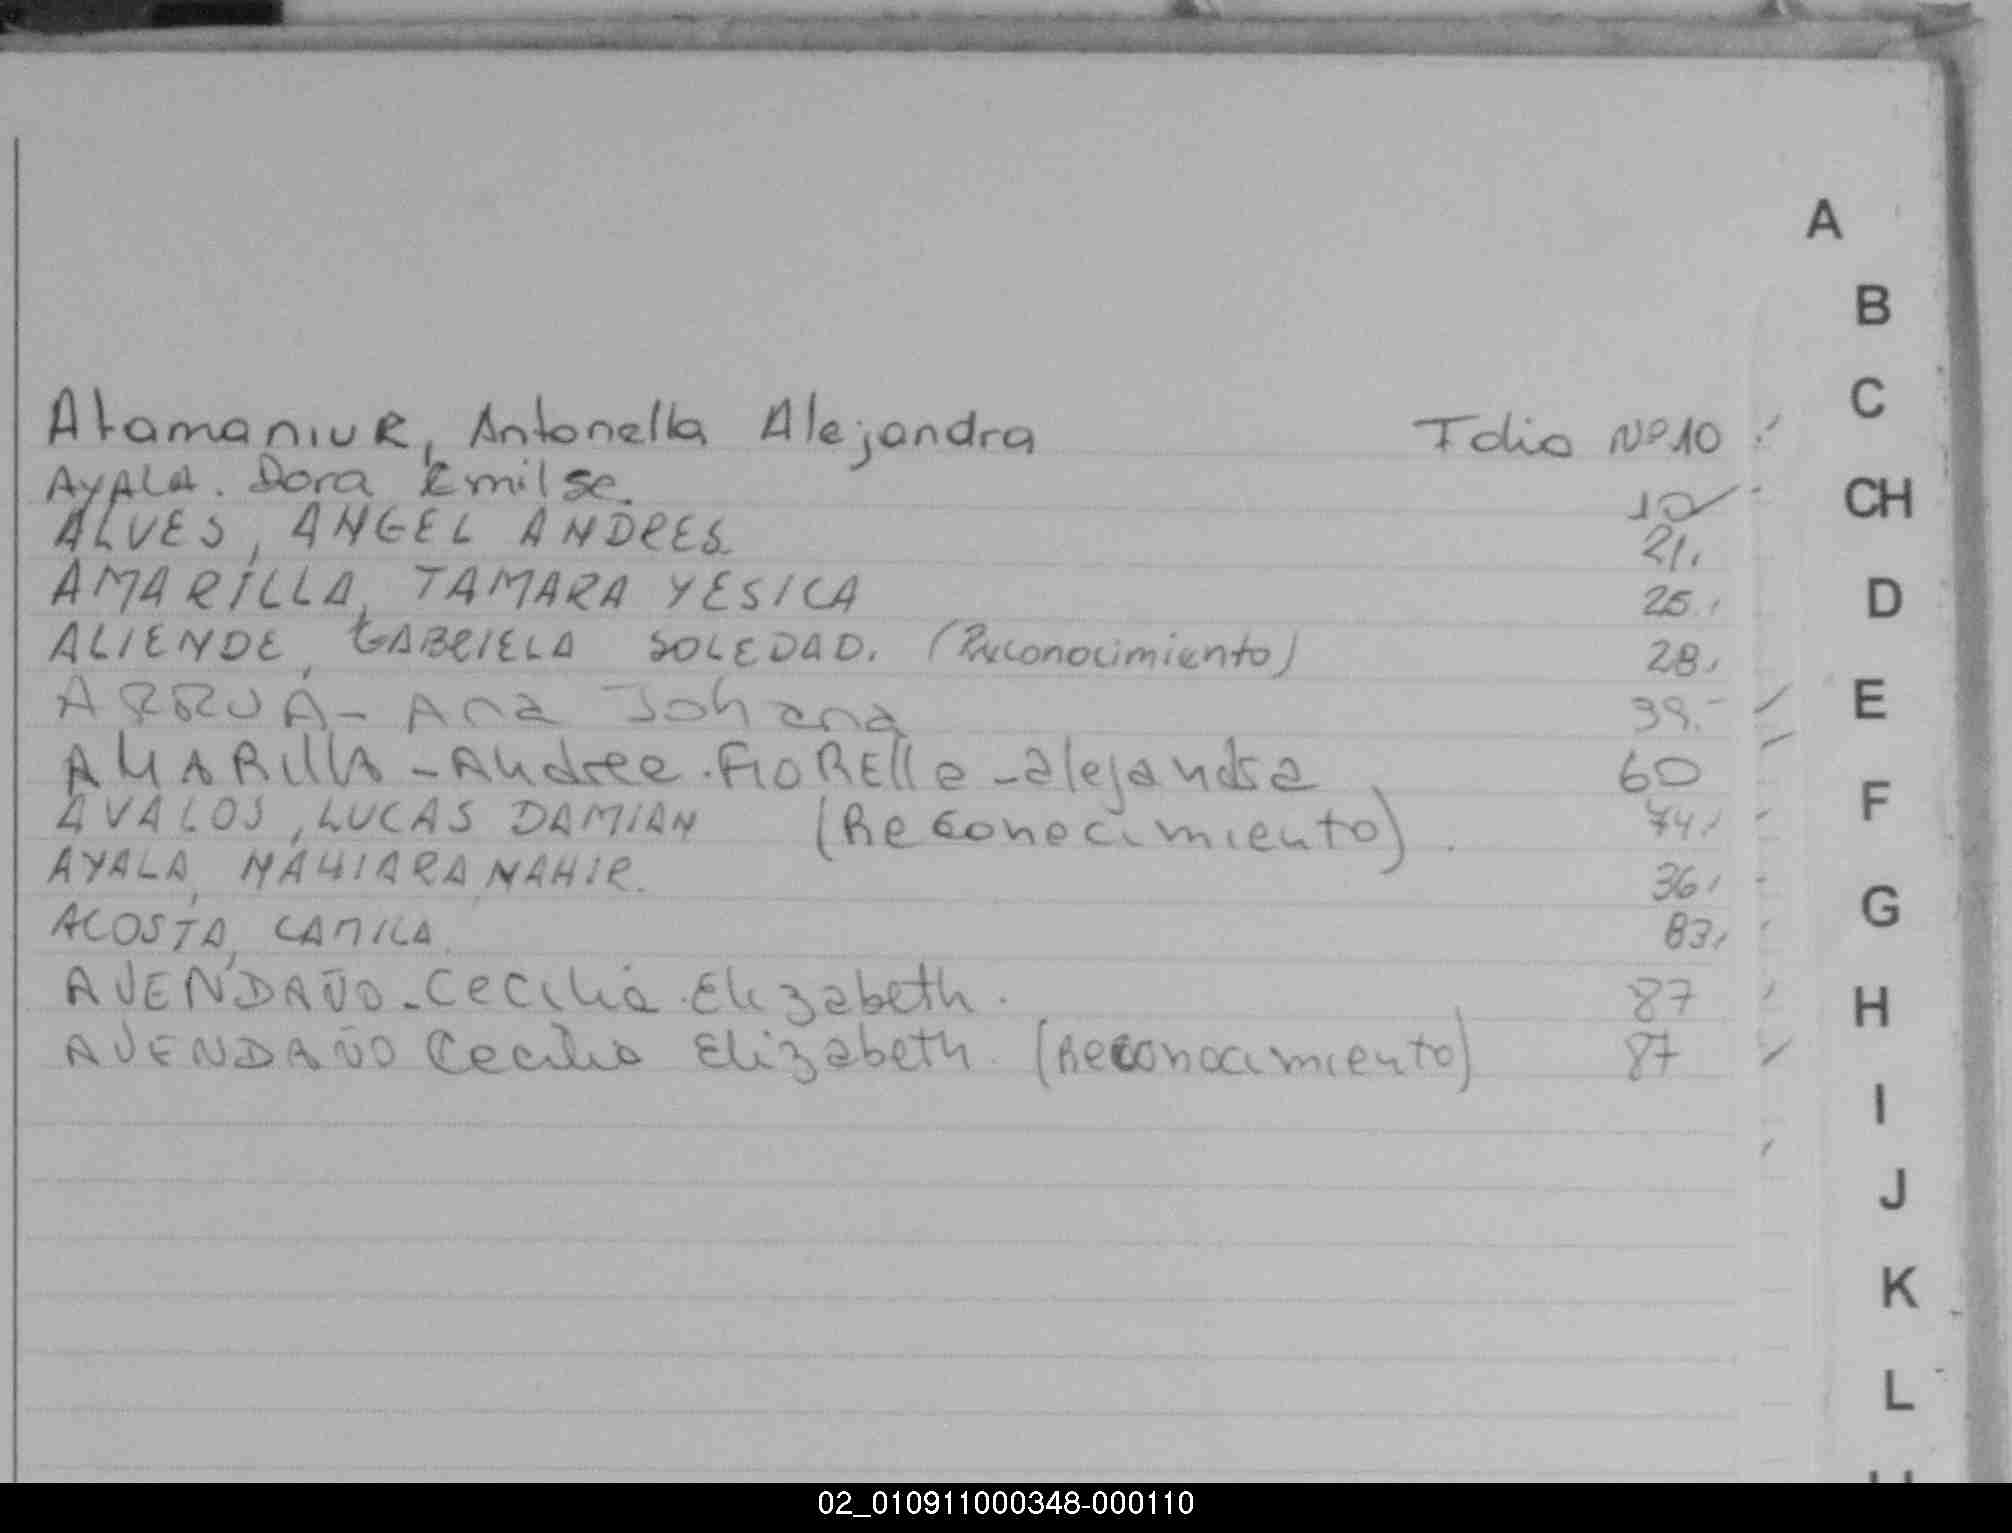 Atamaniuk, Antonella Alejandra Folio Nº 10
AYALA. Dora Emilse. 10
ALVES, ANGEL ANDRES 21,
AMARILLA, TAMARA YESICA 25,
ALIENDE, GABRIELA SOLEDAD. (Reconocimiento) 28,
ARRUÁ - Ana Johana 39.-
AMARILLA - Andree. FIORELLA - alejandra 60
AVALOS, LUCAS DAMIAN (Reconocimiento). 74,
AYALA, NAHIARA NAHIR. 36,
ACOSTA, CAMILA. 83,
AVENDAÑO - Cecilia. Elizabeth. 87
AVENDAÑO Cecilia Elizabeth. (Reconocimiento) 87
A
B
C
CH
D
E
F
G
H
I
J
K
L
02_010911000348-000110